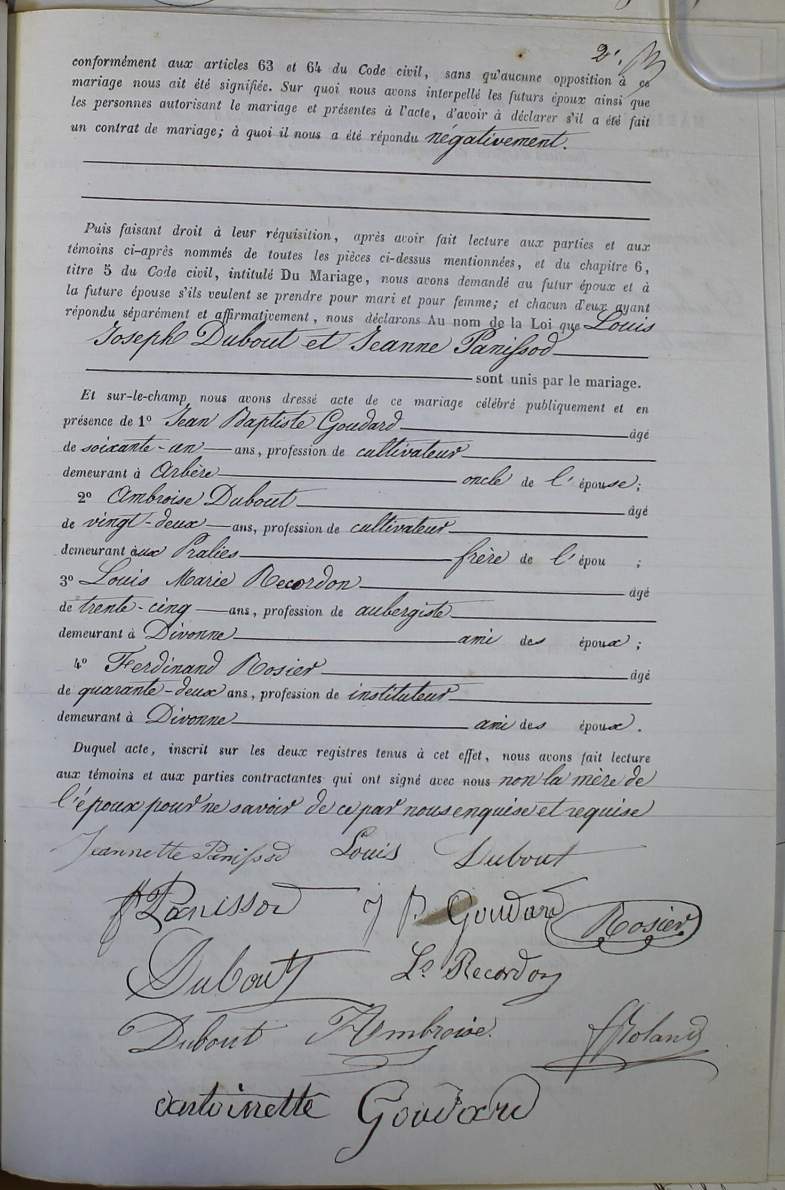 2.
conformément aux articles 63 et 64 du Code civil, sans qu'aucune opposition à ce
mariage nous ait été signifiée. Sur quoi nous avons interpellé les futurs époux ainsi que
les personnes autorisant le mariage et présentes à l'acte, d'avoir à déclarer s'il a été fait
un contrat de mariage; à quoi il nous a été répondu négativement.
Puis faisant droit à leur réquisition, après avoir fait lecture aux parties et aux
témoins ci-après nommés de toutes les pièces ci-dessus mentionnées, et du chapitre 6,
titre 5 du Code civil, intitulé Du Mariage, nous avons demandé au futur époux et à
la future épouse s'ils veulent se prendre pour mari et pour femme; et chacun d'eux ayant
répondu séparément et affirmativement, nous déclarons Au nom de la Loi que Louis
Joseph Dubout et Jeanne Panissod
sont unis par le mariage.
Et sur-le-champ nous avons dressé acte de ce mariage célébré publiquement et en
présence de 1º Jean Baptiste Goudard âgé
de soixante-un ans, profession de cultivateur
demeurant à Arbère oncle de l'épouse;
2º Ambroise Dubout âgé
de vingt-deux ans, profession de cultivateur
demeurant aux Pralies frère de l'épou ;
3º Louis Marie Recordon âgé
de trente-cinq ans, profession de aubergiste
demeurant à Divonne ami des époux;
4º Ferdinand Rosier âgé
de quarante-deux ans, profession de instituteur
demeurant à Divonne ami des époux.
Duquel acte, inscrit sur les deux registres tenus à cet effet, nous avons fait lecture
aux témoins et aux parties contractantes qui ont signé avec nous non la mère de
l'époux pour ne savoir de ce par nous enquise et requise
Jeannette Panissod Louis Dubout
Panissod J B Goudard Rosier
Dubout Ls Recordon
Dubout Ambroise. Roland
antoinette Goudard